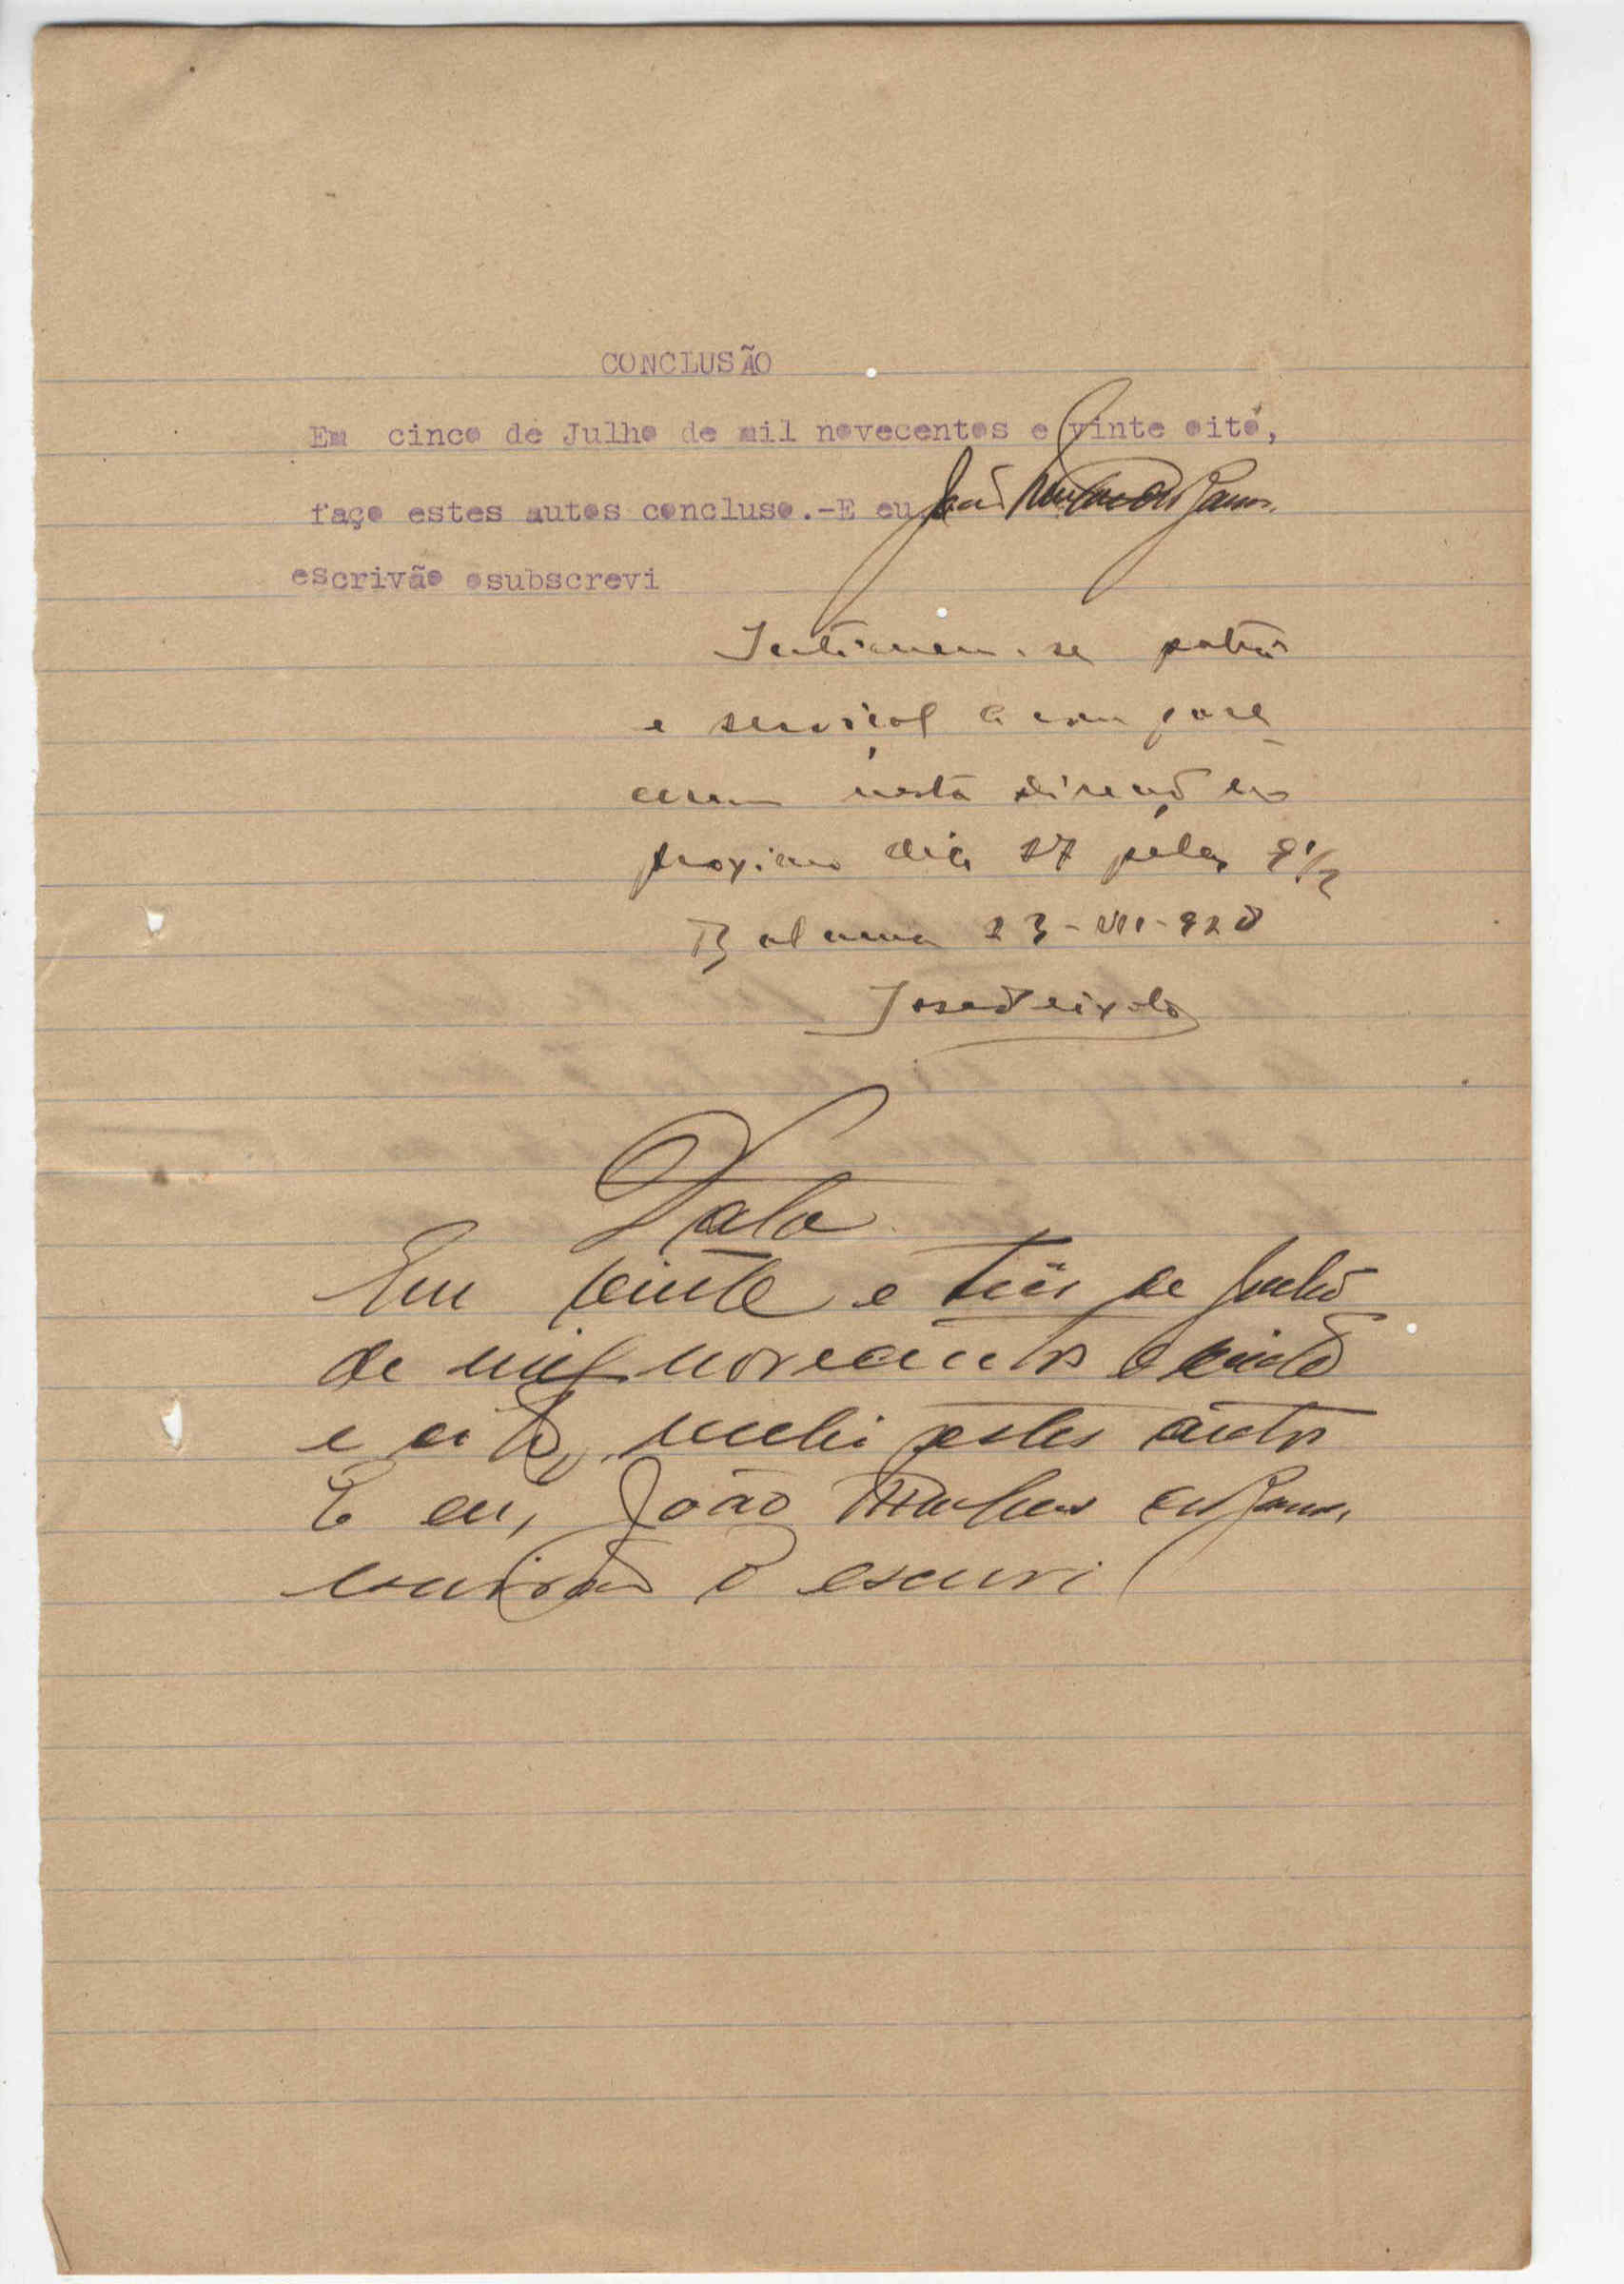 CONCLUSÃO
Em cinco de Julho de mil novecentos e vinte oito,
faço estes autos concluso.-E eu João Ramos.
escrivão osubscrevi
Intimem-se patrão
e serviçal a compare
cerem nesta direcção no
proximo dia 27 pelas 9 1/2
Bolama 23-VII-928
José Peixoto
Data
Em vinte e tres de Julho
de mil novecentos e vinte
e oito, recebi estes autos
E eu, João Ramos,
escrivão o escrevi